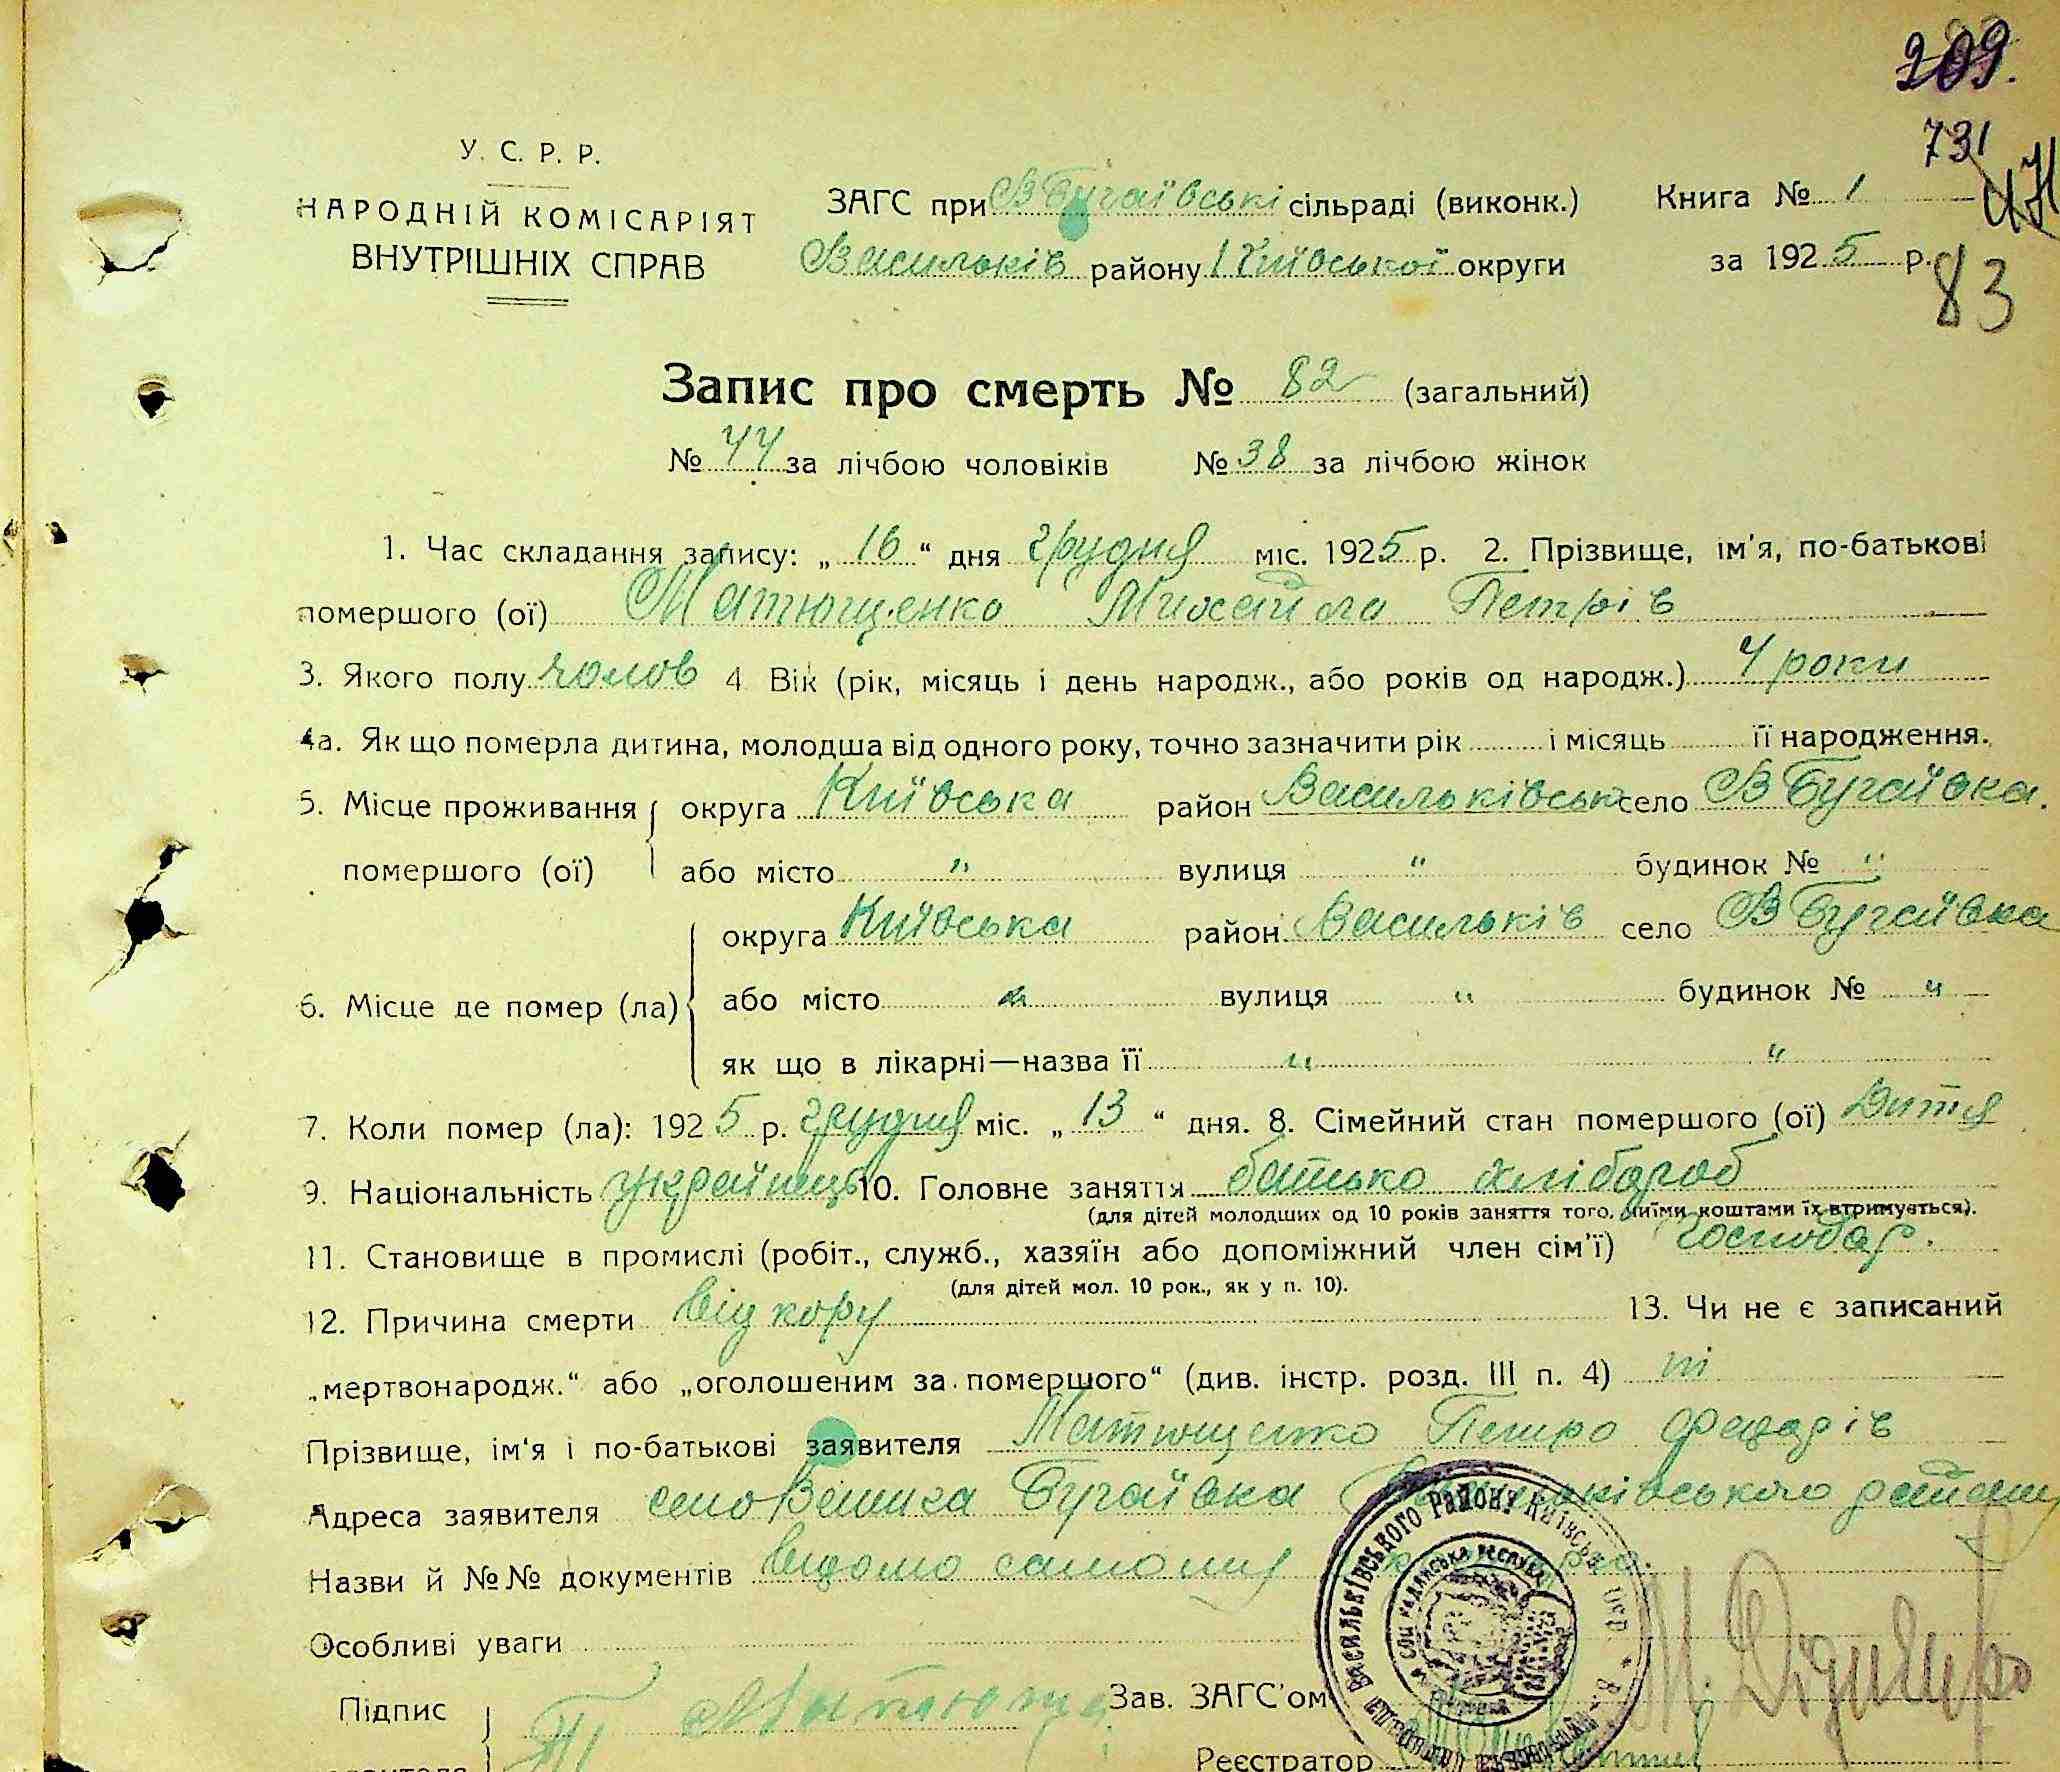 209.
731
У. С. Р. Р.
НАРОДНІЙ КОМІСАРІЯТ
ВНУТРІШНІХ СПРАВ
ЗАГС при В Бугаївські сільраді (виконк.)
Книга № 1
Васильків району Київської округи
за 1925 р.
83
Запис про смерть № 82 (загальний)
№ 44 за лічбою чоловіків № 38 за лічбою жінок
1. Час складання запису: „16“ дня грудня міс. 1925 р. 2. Прізвище, ім'я, по-батькові
помершого (ої) Матющенко Михайло Петрів
3. Якого полу чолов 4 Вік (рік, місяць і день народж., або років од народж.) 4 роки
4а. Як що померла дитина, молодша від одного року, точно зазначити рік і місяць її народження.
5. Місце проживання округа Київська район Васильківськ село В Бугаївка.
помершого (ої) або місто " вулиця " будинок № "
округа Київська район Васильків село В Бугаївка
6. Місце де помер (ла) або місто " вулиця " будинок № "
як що в лікарні—назва її " "
7. Коли помер (ла): 1925 р. грудня міс. „13“ дня. 8. Сімейний стан помершого (ої) Дитя
9. Національність українець 10. Головне заняття батько хлібороб
(для дітей молодших од 10 років заняття того, чиїми коштами їх втримується).
11. Становище в промислі (робіт., служб., хазяїн або допоміжний член сім'ї) господар.
(для дітей мол. 10 рок., як у п. 10).
12. Причина смерти від кору 13. Чи не є записаний
„мертвонародж.“ або „оголошеним за помершого“ (див. інстр. розд. III п. 4) ні
Прізвище, ім'я і по-батькові заявителя Матющенко Петро
Адреса заявителя село Велика Бугаївка Васильківського району
Назви й №№ документів відомо самому
Особливі уваги
Підпис
Зав. ЗАГС'ом
Реєстратор
Васильківського Району Київськ